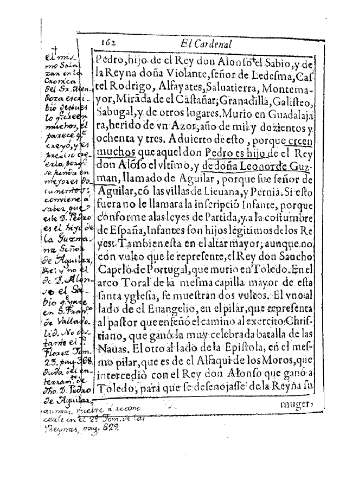 162 El Cardenal
Pedro, hijo de el Rey don Alonso el Sabio, y de
la Reyna doña Violante, señor de Ledesma, Cas
tel Rodrigo, Alfayates, Saluatierra, Montema-
yor, Mirãda de el Castañar; Granadilla, Galisteo,
Sabugal, y de otros lugares. Murio en Guadalaja
ra, herido de vn Azor, año de mil y dozientos y
ochenta y tres. Aduierto de esto, porque creen
muchos que aquel don Pedro es hijo de el Rey
don Alõso el vltimo, y de doña Leonor de Guz-
man, llamado de Aguilar, porque fue señor de
Aguilar, cõ las villas de Lieuana, y Pernia. Si esto
fuera no le llamara la inscripciõ Infante, porque
conforme a las leyes de Partida, y a la costumbre
de España, Infantes son hijos legitimos de los Re
yes. Tambien esta en el altar mayor; aunque no,
con vulto que le represente, el Rey don Sancho
Capelo de Portugal, que murio en Toledo. En el
arco Toral de la mesma capilla mayor de esta
santa yglesia, se muestran dos vultos. El vno al
lado de el Euangelio, en el pilar, que representa
al pastor que enseñò el camino al exercito Chris-
tiano, que ganò la muy celebrada batalla de las
Nauas. El otro al lado de la Epistola, en el mes-
mo pilar, que es de el Alfaqui de los Moros, que
intercediò con el Rey don Alonso que ganò a
Toledo, para que se desenojasse de la Reyna su
muger,
el mis
mo Sala
zar en la
Cronica
del
es el hijo de
la Guzma
na Señor
de Aguilar,
en S. Fran.co
de Vallado
lid. No es
Florez Tom.
23, pag. 368.
de
dho. D. Pedro
de Aguilar,
aunque vuelve a
en el 2º Tom. de las
Reynas, pag. 829.